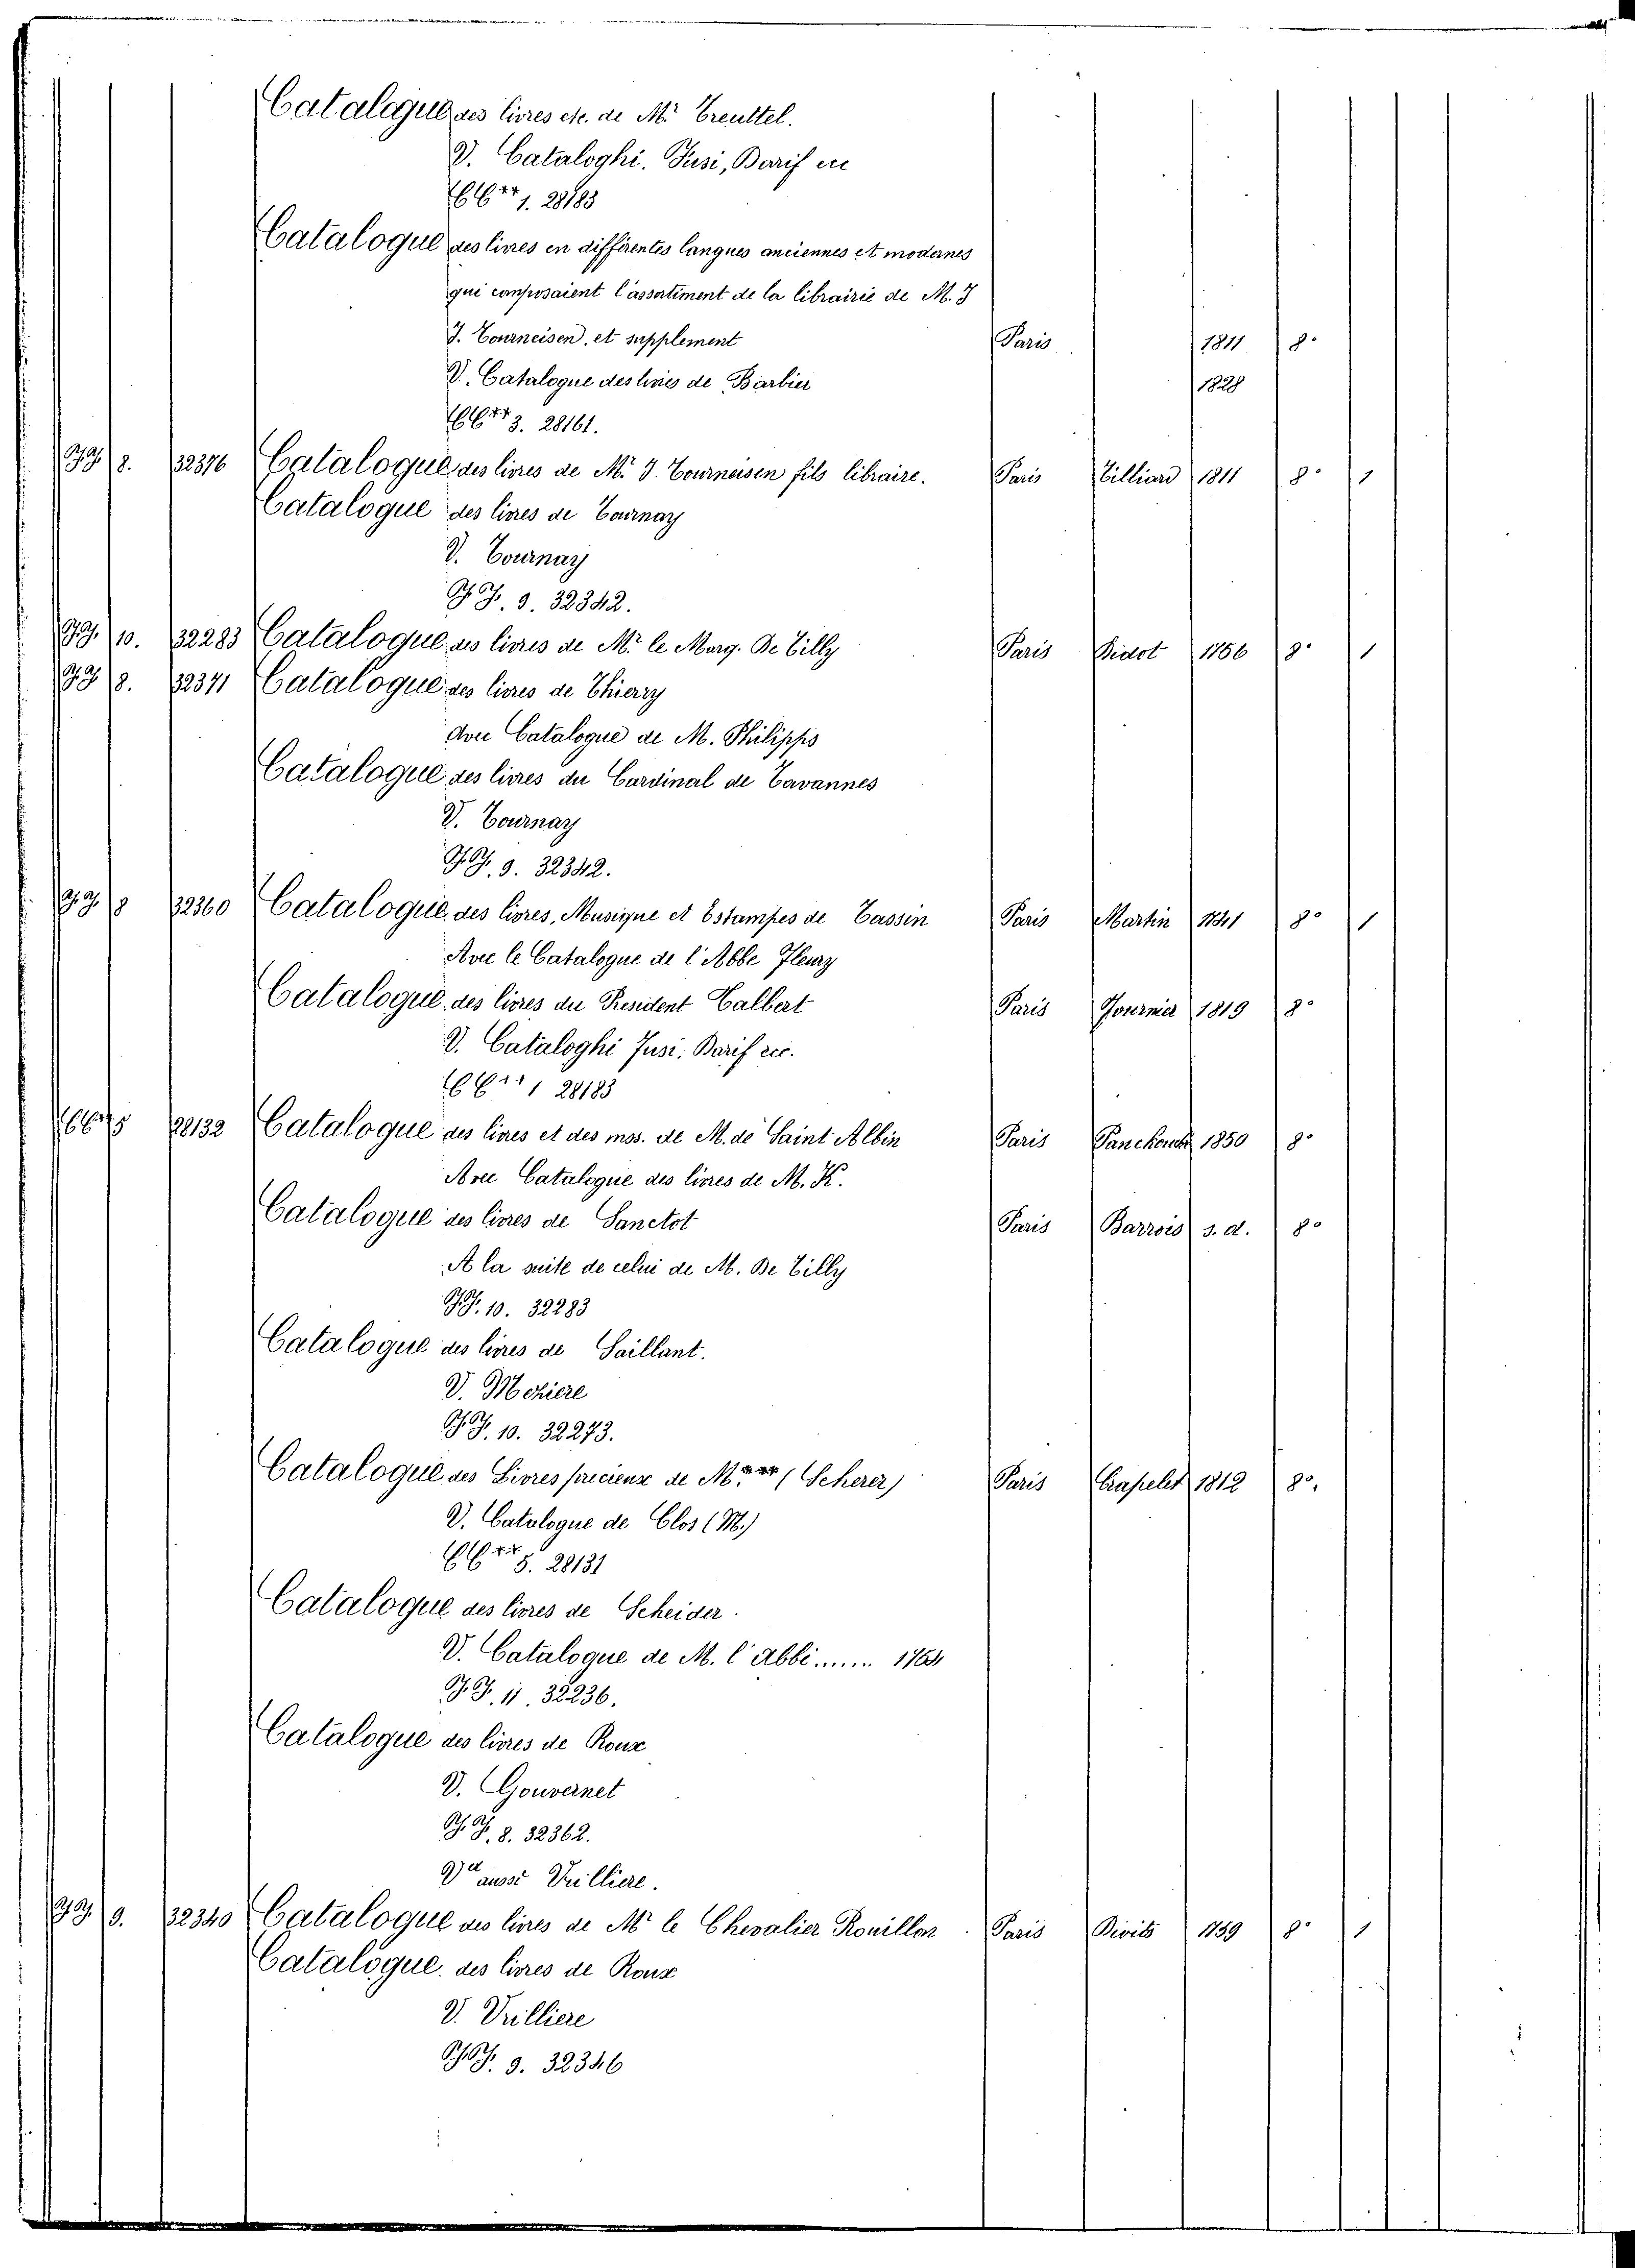 Catalogue des livres etc. de Mr Treuttel.
V. Cataloghi. Jusi, Barif ec
CC** 1. 28183
Catalogue des livres en différentes langues anciennes et modernes
qui composaient l'assortiment de la librairie de M. J
J. Tourneisen, et supplement Paris 1811 8°
V. Catalogue des livres de Barbier 1828
CC** 3. 28161.
GG. 8. 32376 Catalogue des livres de Mr J. Tourneisen fils libraire. Paris Tilliard 1811 8° 1
Catalogue des livres de Tournay
V. Tournay
GG. 9. 32342.
GG. 10. 32283 Catalogue des livres de Mr le Marq. De Tilly Paris Didot 1756 8° 1
GG 8. 32371 Catalogue des livres de Thierry
Avec Catalogue de M. Philipps
Catalogue des livres du Cardinal de Tavannes
V. Tournay
GG. 9. 32342.
GG 8 32360 Catalogue des livres, Musique et Estampes de Tassin Paris Martin 1741 8° 1
Avec le Catalogue de l'Abbe Fleury
Catalogue des livres du President Talbert Paris Fournier 1819 8°
V. Cataloghi Jusi. Barif ecc.
CC** 1 28183
CC** 5 28132 Catalogue des livres et des mss. de M. de Saint Albin Paris Panckouck 1850 8°
Avec Catalogue des livres de M. K.
Catalogue des livres de Sanctot Paris Barrois s. d. 8°
A la suite de celui de M. De Tilly
GG. 10. 32283
Catalogue des livres de Saillant.
V.
GG. 10. 32273.
Catalogue des Livres precieux de M.*** (Scherer) Paris Crapelet 1812 8°.
V. Catalogue de Clos (M.)
CC** 5. 28131
Catalogue des livres de Scheider.
V. Catalogue de M. l'Abbé...... 1764
GG. 11. 32236.
Catalogue des livres de Roux
V. Gouvernet
GG. 8. 32362.
Vd aussi Vrilliere.
GG. 9. 32340 Catalogue des livres de Mr le Chevalier Rouillon Paris 1759 8° 1
Catalogue des livres de Roux
V. Vrilliere
GG. 9. 32346